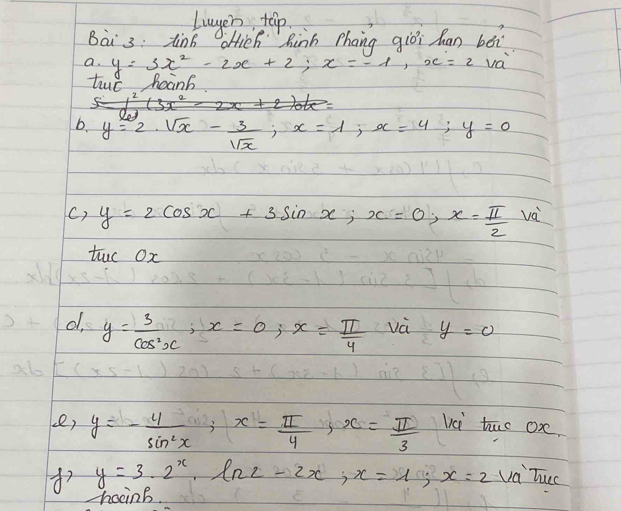 Luyện tập.
Bài 3: tính diện hình phẳng giới hạn bởi
a. y = 3x² - 2x + 2 ; x = -1, x = 2 và
trục hoành.
b. y = 2.√x - 3/√x ; x = 1 ; x = 4 ; y = 0
c, y = 2cosx + 3sinx ; x = 0 ; x = π/2 và
trục Ox
d, y = 3/cos²x ; x = 0 ; x = π/4 và y = 0
e, y = -4/sin²x ; x = π/4 ; x = π/3 và trục Ox.
f, y = 3.2ˣ.ln2 - 2x ; x = 1 ; x = 2 và Trục
hoành.